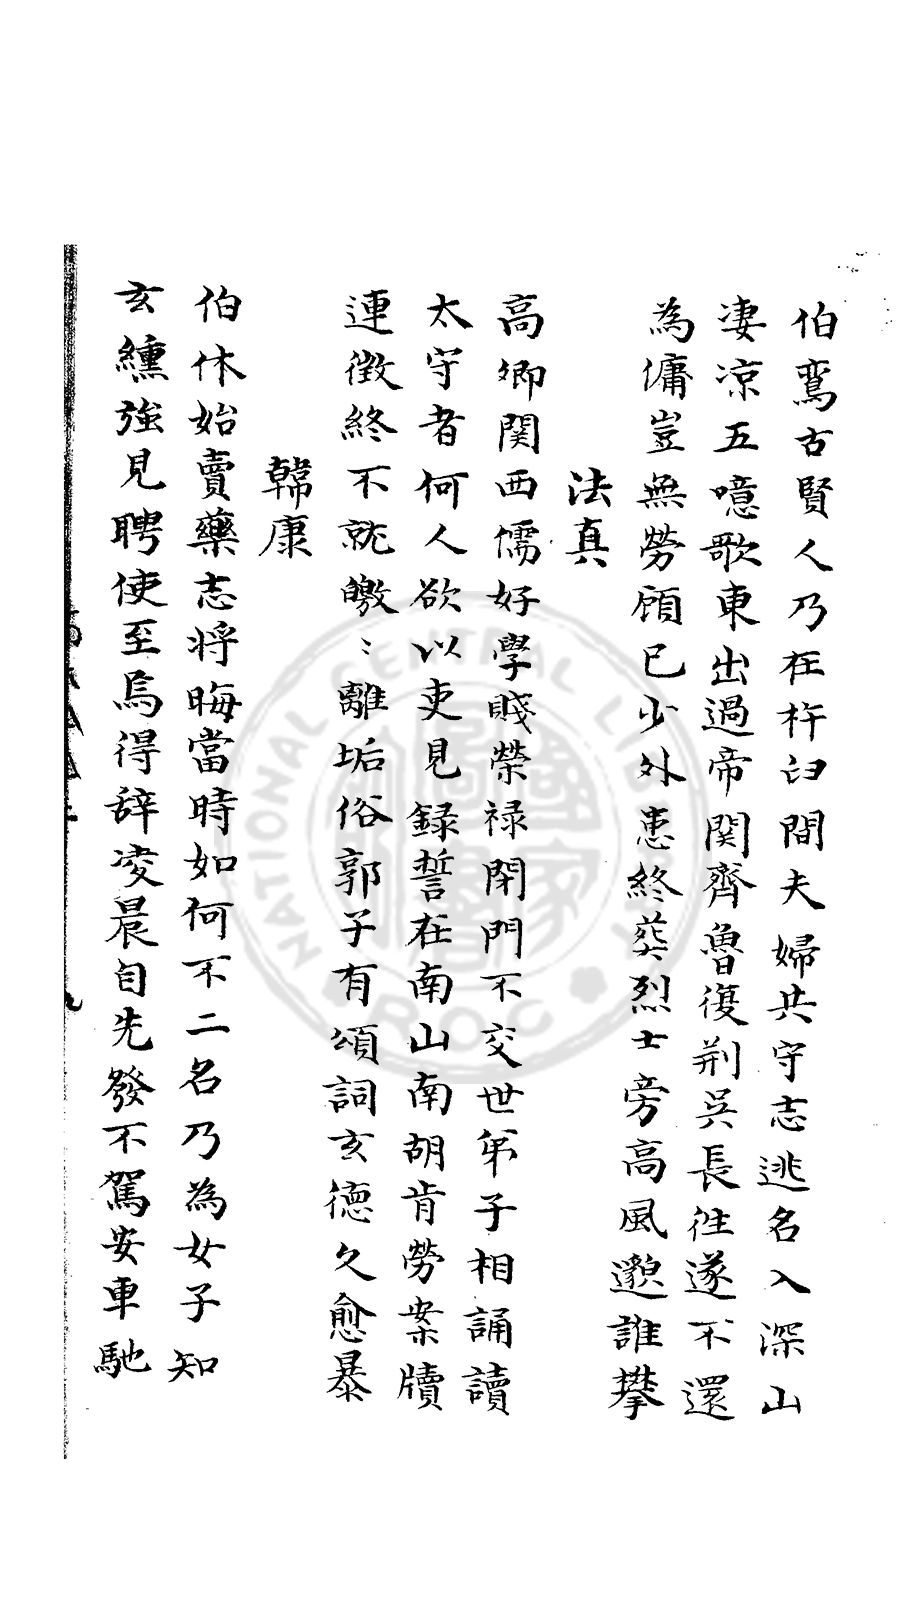 伯鸞古賢人乃在杵臼間夫婦共守志逃名入深山
凄凉五噫歌東出過帝関齊魯復荆吳長徃遂不還
為傭豈無勞顧已少外患終葬烈士旁高風邈誰攀
法真
高卿関西儒好學賤榮禄閉門不交世弟子相誦讀
太守者何人欲以吏見録誓在南山南胡肯勞案牘
連徵終不就皦〻離垢俗郭子有頌詞玄德久愈暴
韓康
伯休始賣藥志将晦當時如何不二名乃為女子知
玄纁強見聘使至焉得辞凌晨自先發不駕安車馳
NATIONAL CENTRAL LIBRARY
R.O.C.
國家圖書館